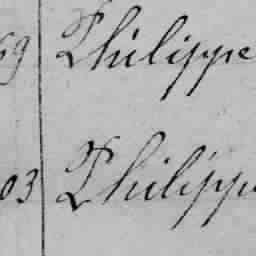 59 Philippe
03 Philippe